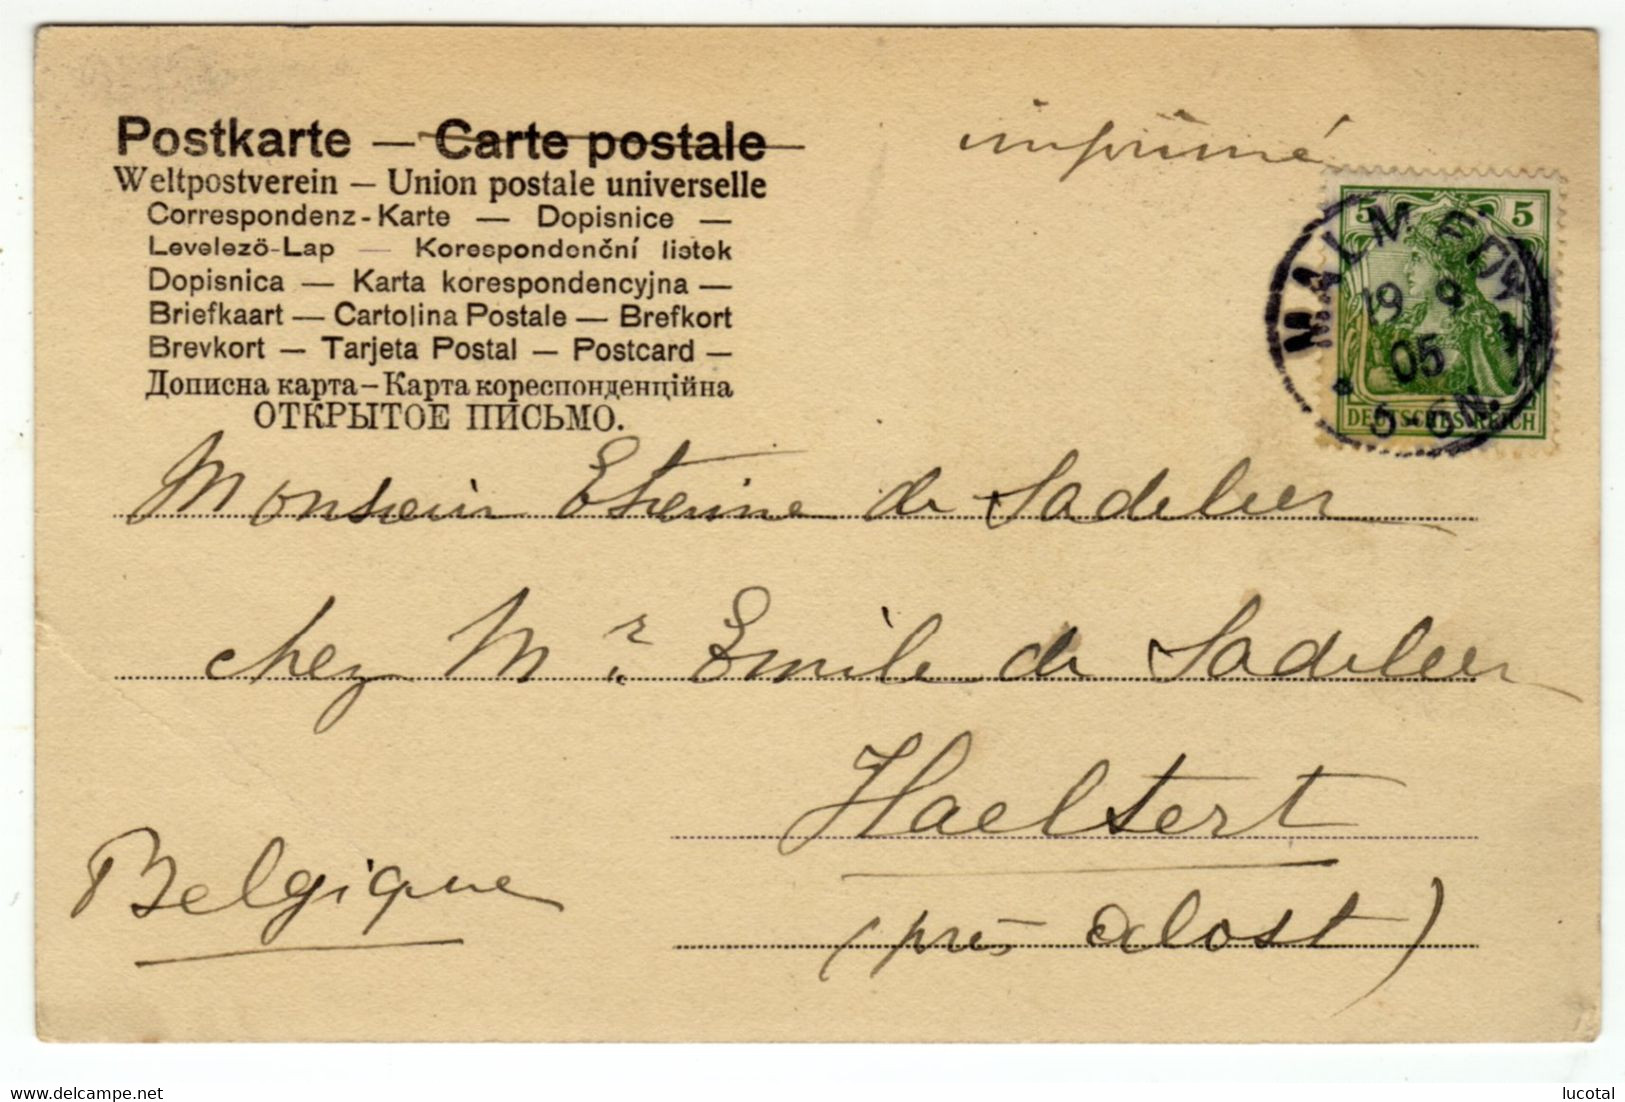 Postkarte — Carte postale
Weltpostverein — Union postale universelle
Correspondenz-Karte — Dopisnice —
Levelező-Lap — Korespondenční listek
Dopisnica — Karta korespondencyjna —
Briefkaart — Cartolina Postale — Brefkort
Brevkort — Tarjeta Postal — Postcard —
Дописна карта — Карта кореспонденційна
ОТКРЫТОЕ ПИСЬМО.
imprimé
5 5
DEUTSCHES REICH
MALMEDY
19 9
05
5-6N.
Monsieur Etienne de Sadeleer
chez Mr. Emile de Sadeleer
Haeltert
Belgique
(près Alost)
lucotal
Delcampe.net